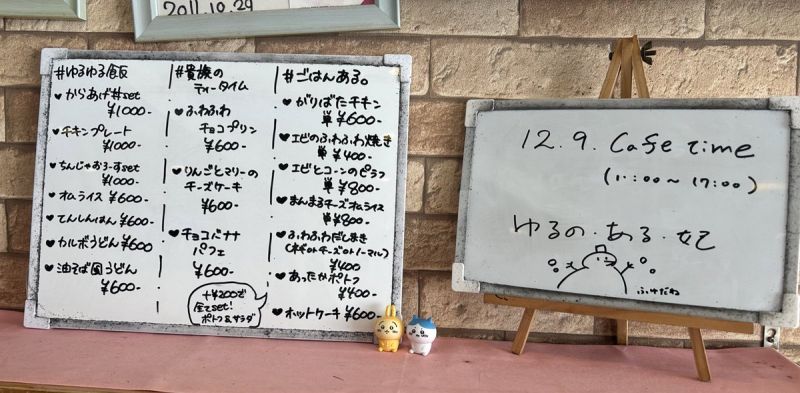 2011.10.29
#ゆるゆる飯
♥からあげ丼set
¥1000-
♥チキンプレート
¥1000-
♥ちんじゃおろーすset
¥1000-
♥オムライス ¥600-
♥てんしんはん ¥600-
♥カルボうどん ¥600-
♥油そば風うどん
¥600-
#貴族の
ティータイム
♥ふわふわ
チョコプリン
¥600-
♥りんごとマリーの
チーズケーキ
¥600-
♥チョコバナナ
パフェ
¥600-
+¥200で
全てset!
ポトフ&サラダ
#ごはんある。
♥がりばたチキン
単 ¥600-
♥エビのふわふわ焼き
単 ¥400-
♥エビとコーンのピラフ
単 ¥800-
♥まんまるチーズオムライス
単 ¥800-
♥ふわふわだしまき
(ネギorチーズorノーマル)
¥400
♥あったかポトフ
¥400-
♥ホットケーキ ¥600-
12.9. Cafe time
(11:00～17:00)
ゆるの・ある・妃